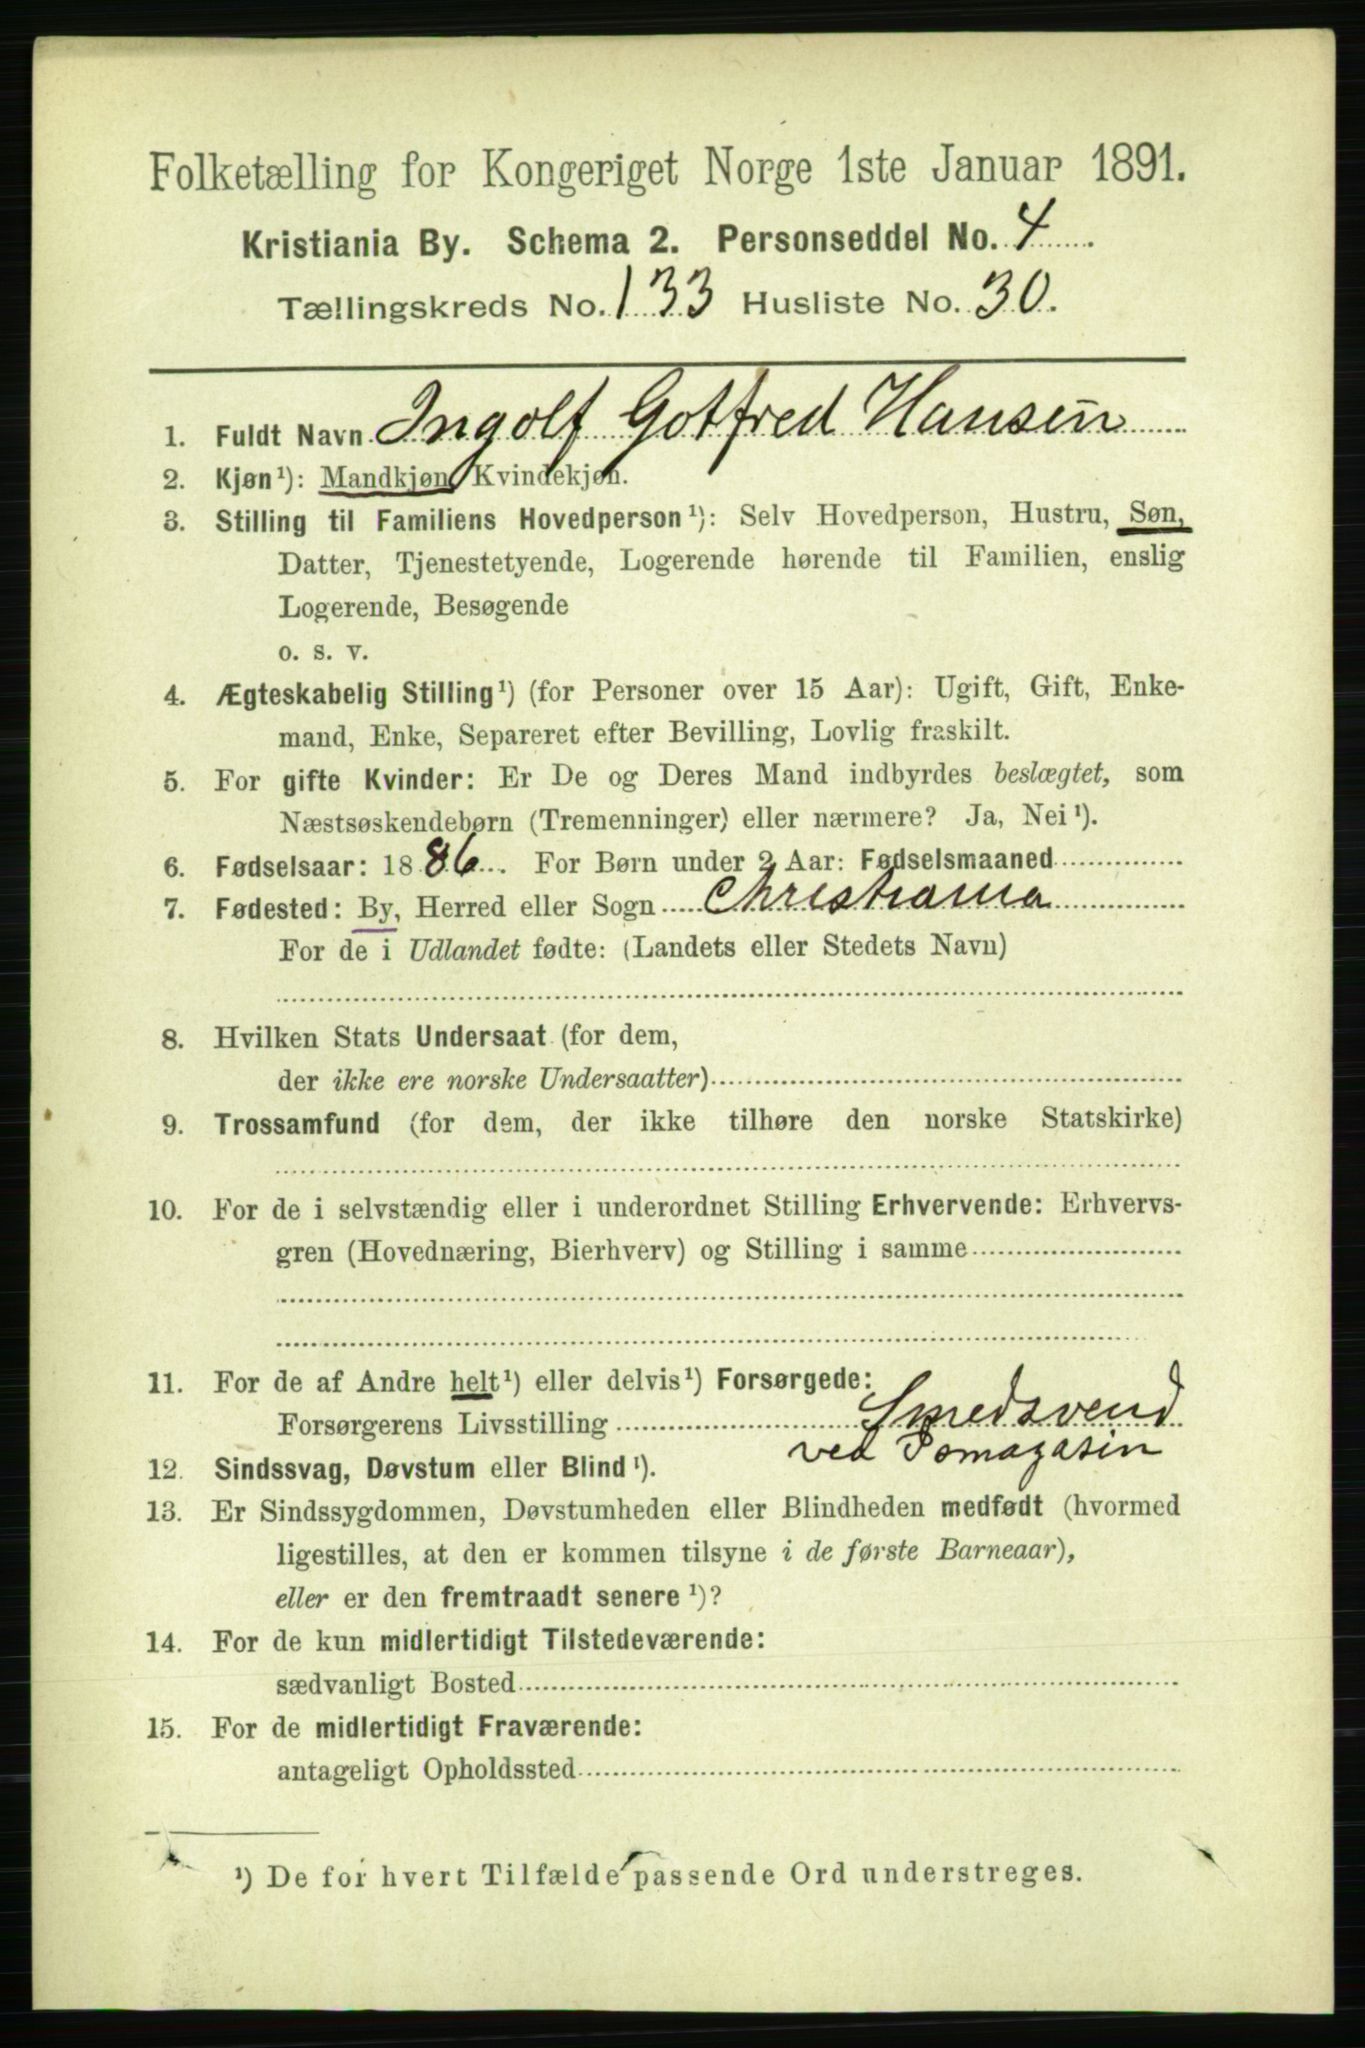 Folketælling for Kongeriget Norge 1ste Januar 1891.
Kristiania By. Schema 2. Personseddel No. 4
Tællingskreds No. 133 Husliste No. 30.
1. Fuldt Navn Ingolf Gotfred Hansen
2. Kjøn¹): Mandkjøn, Kvindekjøn.
3. Stilling til Familiens Hovedperson¹): Selv Hovedperson, Hustru, Søn,
Datter, Tjenestetyende, Logerende hørende til Familien, enslig
Logerende, Besøgende
o. s. v.
4. Ægteskabelig Stilling¹) (for Personer over 15 Aar): Ugift, Gift, Enke-
mand, Enke, Separeret efter Bevilling, Lovlig fraskilt.
5. For gifte Kvinder: Er De og Deres Mand indbyrdes beslægtet, som
Næstsøskendebørn (Tremenninger) eller nærmere? Ja, Nei¹).
6. Fødselsaar: 1886. For Børn under 2 Aar: Fødselsmaaned
7. Fødested: By, Herred eller Sogn Christiania
For de i Udlandet fødte: (Landets eller Stedets Navn)
8. Hvilken Stats Undersaat (for dem,
der ikke ere norske Undersaatter)
9. Trossamfund (for dem, der ikke tilhøre den norske Statskirke)
10. For de i selvstændig eller i underordnet Stilling Erhvervende: Erhvervs-
gren (Hovednæring, Bierhverv) og Stilling i samme
11. For de af Andre helt¹) eller delvis¹) Forsørgede:
Forsørgerens Livsstilling Smedsvend
ved
12. Sindssvag, Døvstum eller Blind¹).
13. Er Sindssygdommen, Døvstumheden eller Blindheden medfødt (hvormed
ligestilles, at den er kommen tilsyne i de første Barneaar),
eller er den fremtraadt senere¹)?
14. For de kun midlertidigt Tilstedeværende:
sædvanligt Bosted
15. For de midlertidigt Fraværende:
antageligt Opholdssted
¹) De for hvert Tilfælde passende Ord understreges.